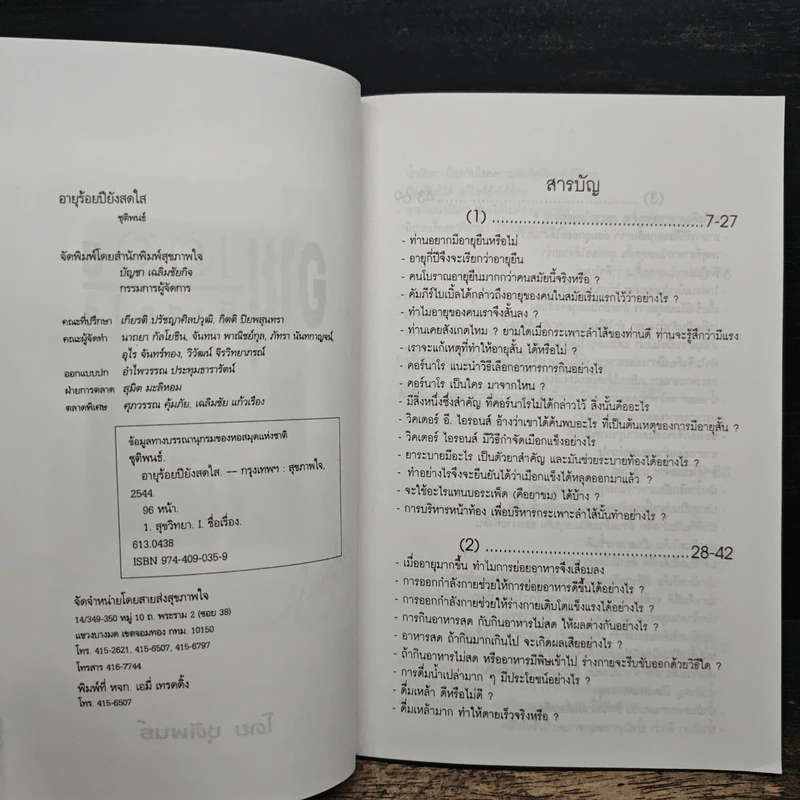 อายุร้อยปียังสดใส
ชุติพนธ์
จัดพิมพ์โดยสำนักพิมพ์สุขภาพใจ
บัญชา เฉลิมชัยกิจ
กรรมการผู้จัดการ
คณะที่ปรึกษา เกียรติ ปรัชญาศิลปวุฒิ, กิตติ ปิยพสุนทรา
คณะผู้จัดทำ นาถยา กัลโยธิน, จันทนา พาณิชย์กุล, ภัทรา นันทกาญจน์,
อุไร จันทร์ทอง, วิวัฒน์ จิรวิทยาภรณ์
ออกแบบปก อำไพวรรณ ประทุมธารารัตน์
ฝ่ายการตลาด สุมิต มะลิหอม
ตลาดพิเศษ ศุภวรรณ คุ้มภัย, เฉลิมชัย แก้วเรือง
ข้อมูลทางบรรณานุกรมของหอสมุดแห่งชาติ
ชุติพนธ์.
อายุร้อยปียังสดใส. -- กรุงเทพฯ : สุขภาพใจ,
2544.
96 หน้า.
1. สุขวิทยา. I. ชื่อเรื่อง.
613.0438
ISBN 974-409-035-9
จัดจำหน่ายโดยสายส่งสุขภาพใจ
14/349-350 หมู่ 10 ถ. พระราม 2 (ซอย 38)
แขวงบางมด เขตจอมทอง กทม. 10150
โทร. 415-2621, 415-6507, 415-6797
โทรสาร 416-7744
พิมพ์ที่ หจก. เอมี่ เทรดดิ้ง
โทร. 415-6507
สารบัญ
(1) ............................................ 7-27
- ท่านอยากมีอายุยืนหรือไม่
- อายุกี่ปีจึงจะเรียกว่าอายุยืน
- คนโบราณอายุยืนมากกว่าคนสมัยนี้จริงหรือ ?
- คัมภีร์ไบเบิ้ลได้กล่าวถึงอายุของคนในสมัยเริ่มแรกไว้ว่าอย่างไร ?
- ทำไมอายุของคนเราจึงสั้นลง ?
- ท่านเคยสังเกตไหม ? ยามใดเมื่อกระเพาะลำไส้ของท่านดี ท่านจะรู้สึกว่ามีแรง
- เราจะแก้เหตุที่ทำให้อายุสั้น ได้หรือไม่ ?
- คอร์นาโร แนะนำวิธีเลือกอาหารการกินอย่างไร
- คอร์นาโร เป็นใคร มาจากไหน ?
- มีสิ่งหนึ่งซึ่งสำคัญ ที่คอร์นาโรไม่ได้กล่าวไว้ สิ่งนั้นคืออะไร
- วิคเตอร์ อี. ไอรอนส์ อ้างว่าเขาได้ค้นพบอะไร ที่เป็นต้นเหตุของการมีอายุสั้น ?
- วิคเตอร์ ไอรอนส์ มีวิธีกำจัดเมือกแข็งอย่างไร
- ยาระบายมีอะไร เป็นตัวยาสำคัญ และมันช่วยระบายท้องได้อย่างไร ?
- ทำอย่างไรจึงจะยืนยันได้ว่าเมือกแข็งได้หลุดออกมาแล้ว ?
- จะใช้อะไรแทนบอระเพ็ด (คือยาขม) ได้บ้าง ?
- การบริหารหน้าท้อง เพื่อบริหารกระเพาะลำไส้นั้นทำอย่างไร ?
(2) ............................................ 28-42
- เมื่ออายุมากขึ้น ทำไมการย่อยอาหารจึงเสื่อมลง
- การออกกำลังกายช่วยให้การย่อยอาหารดีขึ้นได้อย่างไร ?
- การออกกำลังกายช่วยให้ร่างกายเติบโตแข็งแรงได้อย่างไร ?
- การกินอาหารสด กับกินอาหารไม่สด ให้ผลต่างกันอย่างไร ?
- อาหารสด ถ้ากินมากเกินไป จะเกิดผลเสียอย่างไร ?
- ถ้ากินอาหารไม่สด หรืออาหารมีพิษเข้าไป ร่างกายจะรีบขับออกด้วยวิธีใด ?
- การดื่มน้ำเปล่ามาก ๆ มีประโยชน์อย่างไร ?
- ดื่มเหล้า ดีหรือไม่ดี ?
- ดื่มเหล้ามาก ทำให้ตายเร็วจริงหรือ ?